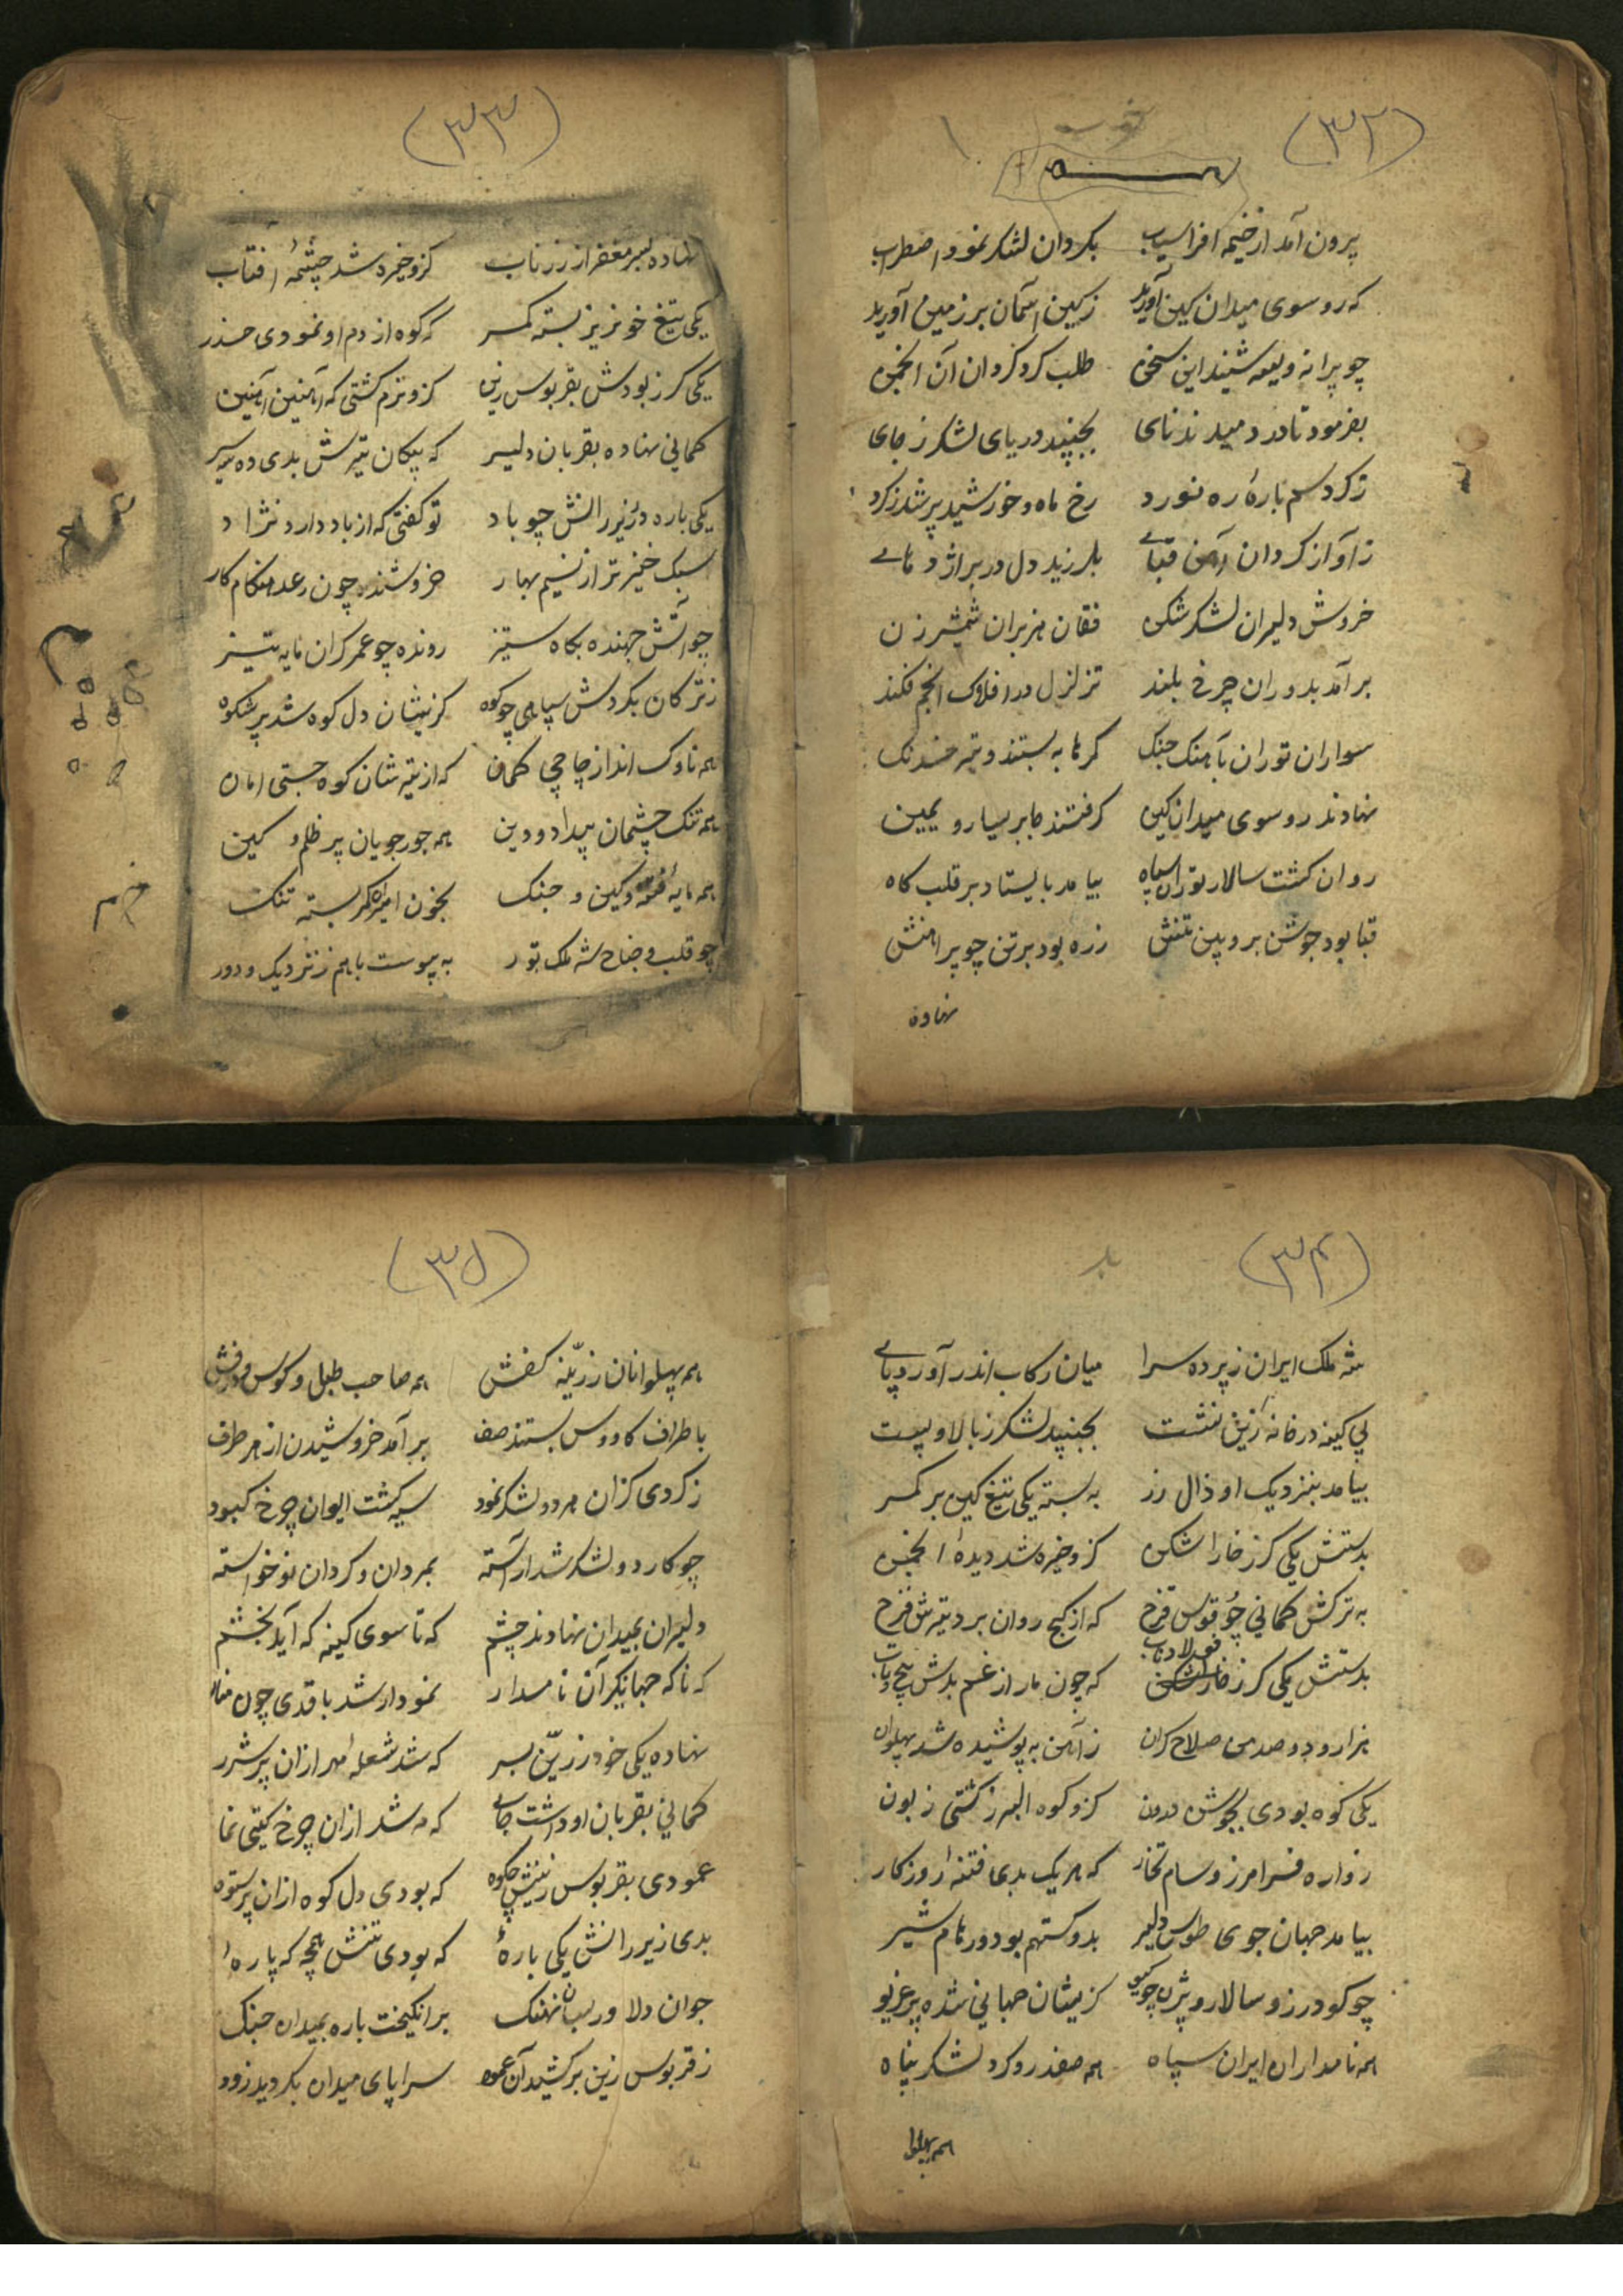 (۳۲)
برون آمد از خیمه افراسیاب بکردان لشکر نمود اضطراب
که رو سوی میدان کین آورید ز کین آسمان بر زمین آورید
چو پیرانه ویسه شنید این سخن طلب کرد کردان آن انجمن
بفرمود تا در دمیدند نای بجنبید دریای لشکر ز جای
ز کرد سم بارهٔ ره نورد رخ ماه و خورشید پر شد ز کرد
ز آواز کردان آهن قبای بلرزید دل در بر اژدهای
خروش دلیران لشکر شکن فغان هزبران شمشیر زن
برآمد بدوران چرخ بلند تزلزل در افلاک انجم فکند
سواران توران بآهنک جنک کرها به بستند و تیر خدنک
نهادند رو سوی میدان کین کرفتند جا بر یسار و یمین
روان کشت سالار توران سپاه بیامد بایستاد بر قلب کاه
قبا بود جوشن بر ویین تنش زره بود بر تن چو پیراهنش
نهاده
(۳۳)
نهاده بسر مغفر از زر ناب کزو خیره شد چشمهٔ آفتاب
یکی تیغ خونریز بسته کمر که کوه از دم او نمودی حذر
یکی کرز بودش بقربوس زین کزو نرم کشتی که آهنین
کمانی نهاده بقربان دلیر که پیکان تیرش بدی ده سیر
یکی باره در زیر رانش چو باد تو کفتی که از باد دارد نژاد
سبک خیزتر از نسیم بهار خروشنده چون رعد هنکام کار
چو آتش جهنده بکاه ستیز رونده چو عمر کران مایه تیز
ز ترکان بکردش سپاهی چو کوه کزیشان دل کوه شد پر شکوه
همه ناوک انداز چاچی کمان که از تیرشان کوه جستی امان
همه تنک چشمان بیداد و دین همه جورجویان پر ظلم و کین
همه مایهٔ فتنه و کین و جنک بخون امیران کمر بسته تنک
چو قلب و جناح شه ملک تور به پیوست باهم ز نزدیک و دور
(۳۴)
شه ملک ایران ز پرده سرا میان رکاب اندر آورد پای
پی کینه در خانهٔ زین نشست بجنبید لشکر ز بالا و پست
بیامد بنزدیک او ذال زر به بسته یکی تیغ کین بر کمر
بدستش یکی کرز خارا شکن کزو خیره شد دیدهٔ انجمن
به ترکش کمانی چو قوس قزح که از کج روان برد تیرش فرح
بدستش یکی کرز فولاد ناب که چون مار از غم بدش پیچ و تاب
هزار و دو صد من صلاح کران ز آهن به پوشیده شد پهلوان
یکی کوه بودی بجوشن درون کزو کوه البرز کشتی زبون
زواره فرامرز و سام تخار که هر یک بدی فتنهٔ روزکار
بیامد جهان جوی طوس دلیر بدو کستهم بود و رهام شیر
چو کودرز و سالار و بیژن چو کیو کزیشان جهانی شده پر غریو
همه نامداران ایران سپاه همه صفدر و کرد لشکر پناه
هم پهلوا
(۳۵)
همه پهلوانان زرینه کفش همه صاحب طبل و کوس و درفش
باطراف کاووس بستند صف برآمد خروشیدن از هر طرف
ز کردی کزان هر دو لشکر نمود سیه کشت ایوان چرخ کبود
چو کار دو لشکر شد آراسته بمردان و کردان نوخواسته
دلیران بمیدان نهادند چشم که تا سوی کینه که آید بخشم
که ناکه جهانکیر آن نامدار نمودار شد با قدی چون منار
نهاده یکی خود زرین بسر که شد شعلهٔ مهر ازان پر شرر
کمانی بقربان او داشت جای که مه شد ازان چرخ کیتی نما
عمودی بقربوس زینش چو کوه که بودی دل کوه ازان پر ستوه
بدی زیر رانش یکی بارهٔ که بودی تنش همچو که پارهٔ
جوان دلاور بسان نهنک برانکیخت باره بمیدان جنک
ز قربوس زین برکشید آن عمود سراپای میدان بکردید زود